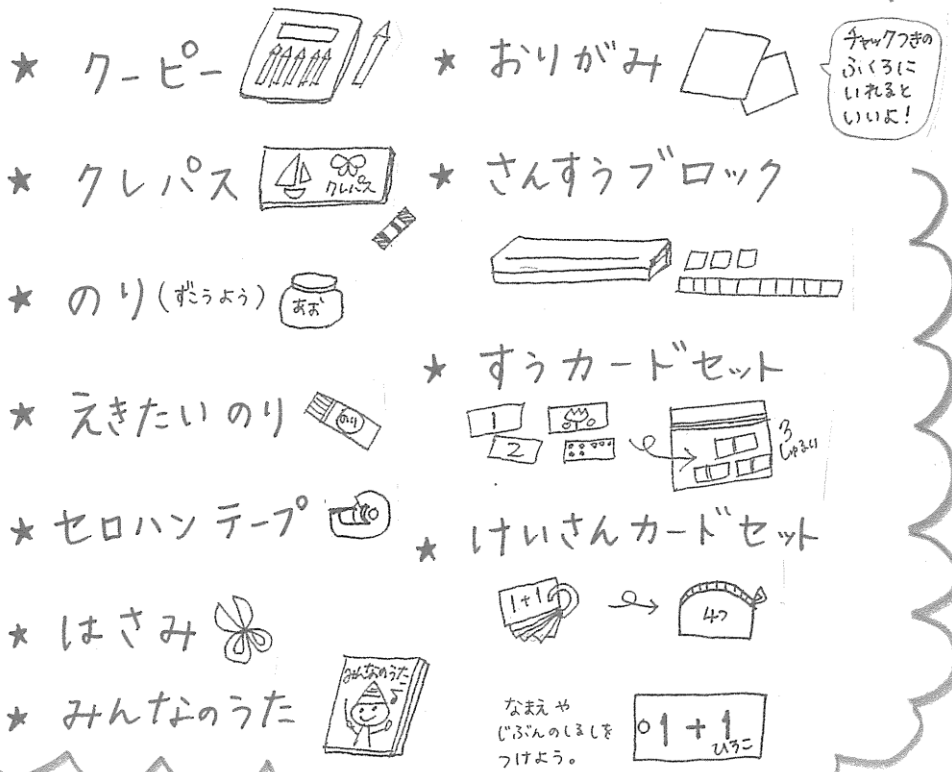 ★ クーピー
★ クレパス
クレパス
★ のり(ずこうよう)
あお
★ えきたいのり
のり
★ セロハンテープ
★ はさみ
★ みんなのうた
みんなのうた
★ おりがみ
チャックつきの
ふくろに
いれると
いいよ!
★ さんすうブロック
★ すうカードセット
1
2
3
しゅるい
★ けいさんカードセット
1+1
4つ
なまえや
じぶんのしるしを
つけよう。
1+1
ひろこ